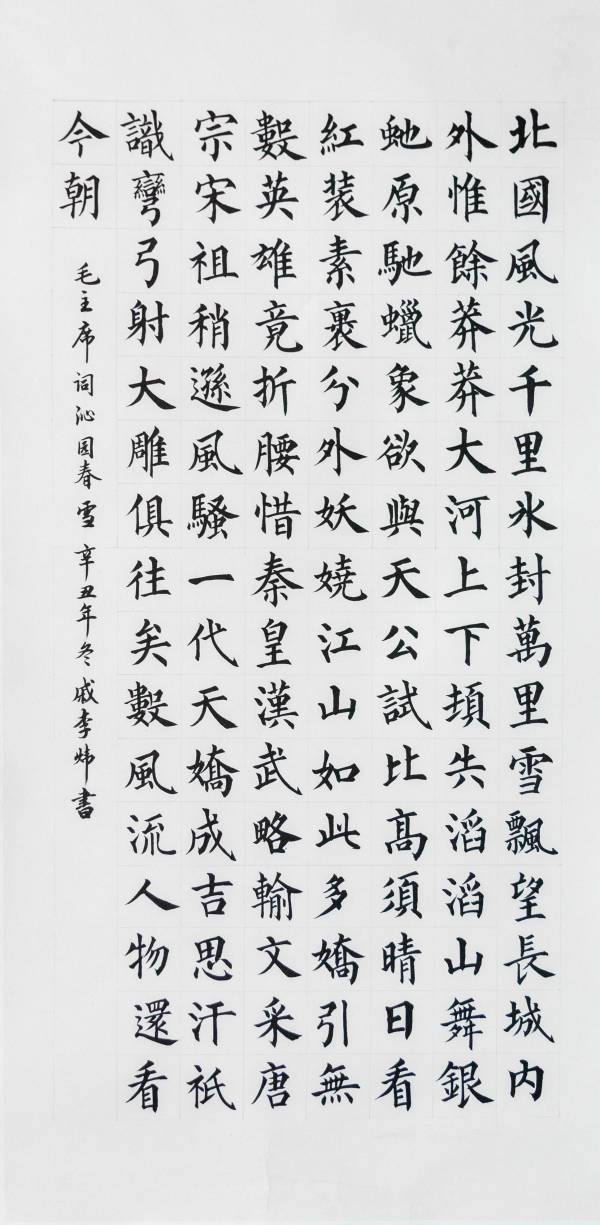 北國風光千里氷封萬里雪飄望長城内
外惟餘莽莽大河上下頓失滔滔山舞銀
虵原馳蠟象欲與天公試比髙須晴日看
紅装素裹分外妖嬈江山如此多嬌引無
數英雄竟折腰惜秦皇漢武略輸文采唐
宗宋祖稍遜風騷一代天嬌成吉思汗祇
識彎弓射大雕俱往矣數風流人物還看
今朝
毛主席词沁园春雪 辛丑年冬戚李炜書